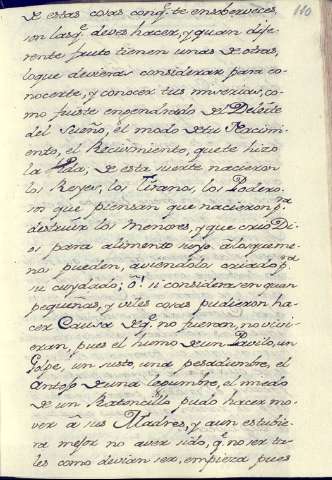 110
de estas cosas conq.e te ensoberveces,
son las q.e deves hacer, y quan dife
rente fruto tienen unas de otras,
loque devieras considerar para co
nocerte, y conocer tus miserias, co
mo fuiste engendrado del Deleite
del sueño, el modo de tu Nacimi
ento, el Recivimiento, que te hizo
la Vida, de esta suerte nacieron
los Reyes, los Tiranos, los Podero
sos que piensan que nacieron p.a
destruir los Menores, y que crió Di
os para alimento suyo, à los que me
nos pueden, aviendolo criado p.a
su cuydado; ô! si considerases quan
pequeñas, y viles cosas pudieron ha
cer Causa de q.e no fueran, no vivi
eran, pues el humo de un Pavilo, un
Golpe, un susto, una pesadumbre, el
Antojo de una legumbre, el miedo
de un Ratoncillo pudo hacer mo
ver â sus Madres, y aun estubie
ra mejor no aver sido, q.e no ser ta
les como devian ser, empieza pues